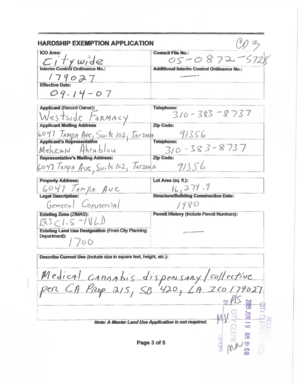 CD 3
HARDSHIP EXEMPTION APPLICATION
ICO Area: Council File No.:
Citywide 05-0872-S728
Interim Control Ordinance No.: Additional Interim Control Ordinance No.:
179027
Effective Date:
09-14-07
Applicant (Record Owner): Telephone:
Westside Farmacy 310-383-8737
Applicant Mailing Address Zip Code:
6047 Tampa Ave, Suite 102, Tarzana 91356
Applicant's Representative Telephone:
Mehran Ahrablou 310-383-8737
Representative's Mailing Address: Zip Code:
6047 Tampa Ave, Suite 102, Tarzana 91356
Property Address: Lot Area (sq. ft.):
6047 Tampa Ave 16,279.9
Legal Description: Structure/Building Construction Date:
General Commercial 1980
Existing Zone (ZIMAS): Permit History (Include Permit Numbers):
Existing Land Use Designation (From City Planning
Department):
1700
Describe Current Use (include size in square feet, height, etc.):
Medical cannabis dispensary/collective
per CA Prop 215, SB 420, LA ICO 179027
Note: A Master Land Use Application is not required.
Page 3 of 5